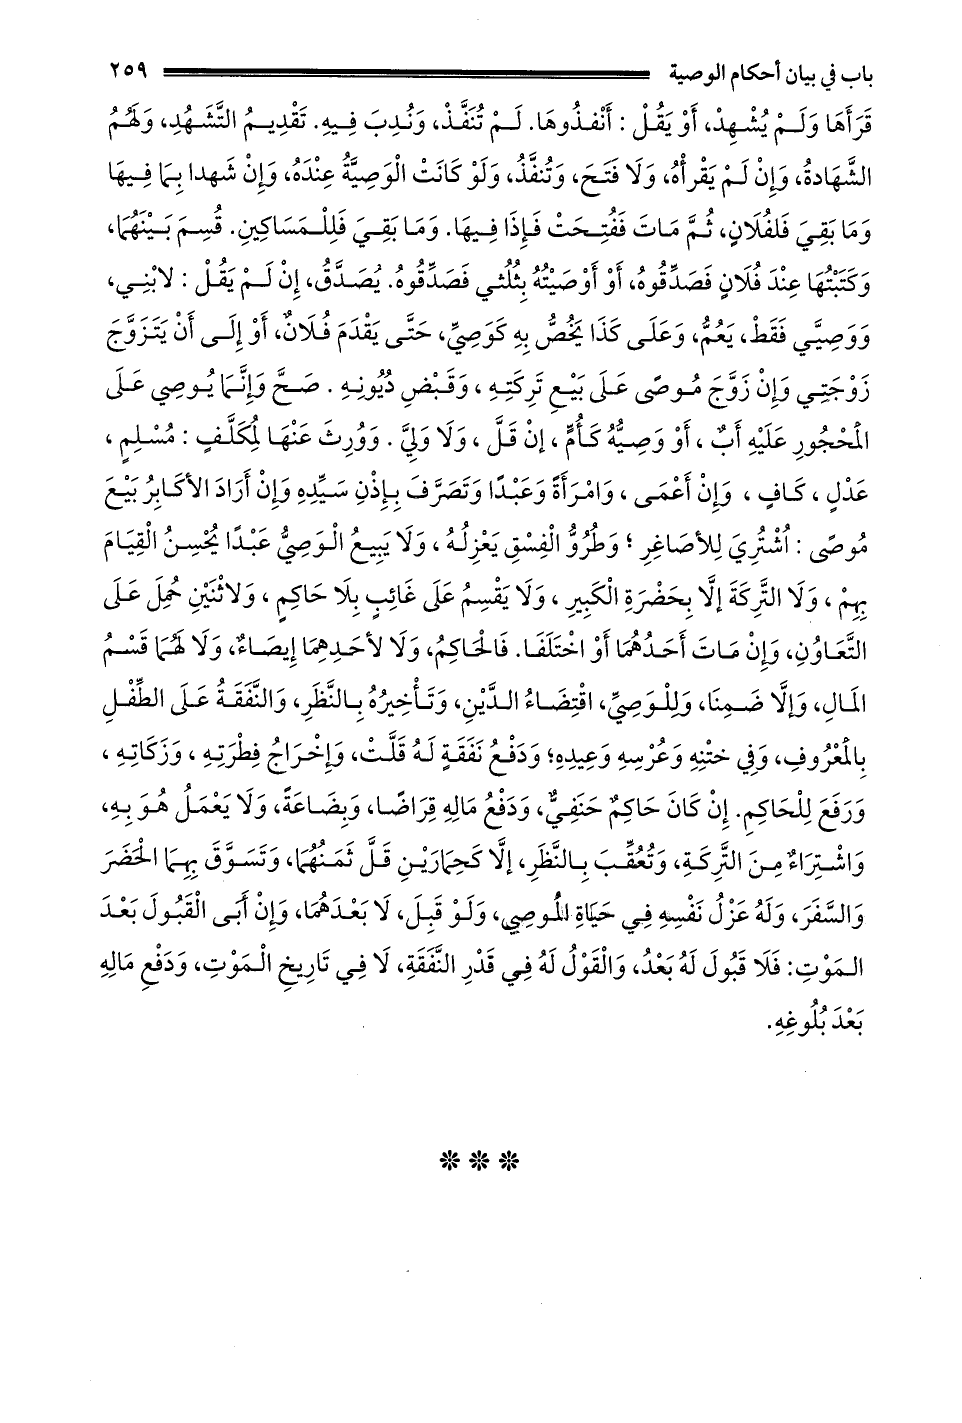 باب في بيان أحكام الوصية ٢٥٩
قَرَأَهَا وَلَمْ يُشْهِدْ، أَوْ يَقُلْ : أَنْفِذُوهَا. لَمْ تُنَفَّذْ، وَنُدِبَ فِيهِ. تَقْدِيمُ التَّشَهُّدِ، وَلَهُمُ
الشَّهَادةُ، وَإِنْ لَمْ يَقْرأْهُ، وَلَا فَتَحَ، وَتُنفَّذُ، وَلَو كَانَتْ الْوَصِيَّةُ عِنْدَهُ، وَإنْ شَهدا بِمَا فِيهَا
وَمَا بَقِيَ فَلفُلَانٍ، ثُمَّ مَاتَ فَفُتِحَتْ فَإِذَا فِيهَا. وَمَا بَقِيَ فَلِلْمَسَاكِينِ. قُسِمَ بَيْنَهُمَا،
وَكَتَبْتُهَا عِنْدَ فُلَان فَصَدِّقُوهُ، أَوْ أَوْصَيْتُهُ بِثُلُثي فَصَدِّقُوهُ. يُصَدَّقُ، إِنْ لَمْ يَقُلْ : لابْنِي،
وَوَصِيَّي فَقَطْ، يَعُمُّ، وَعَلَى كَذَا يَخُصُّ بِهِ كَوَصِيِّ، حَتَّى يَقْدَمَ فُلَانٌ، أَوْ إِلَى أَنْ يَتَزَوَّجَ
زَوْجَتِي وَإِنْ زَوَّجَ مُوصًى عَلَى بَيْعِ تَرِكَتِهِ ، وَقَبْضِ دُيُونِهِ . صَحَّ وَإِنَّمَا يُوصِي عَلَى
الْمَحْجُورِ عَلَيْهِ أَبٌ ، أَوْ وَصِيُّهُ كَأُمٍّ ، إنْ قَلَّ ، وَلَا وَلِيَّ . وَوُرِثَ عَنْهَا لِمُكَلَّفٍ : مُسْلِمٍ ،
عَدْلٍ ، كَافٍ ، وَإِنْ أَعْمَى ، وَامْرَأَةً وَعَبْدًا وَتَصَرَّفَ بِإِذْنِ سَيِّدِهِ وَإِنْ أَرَادَ الأَكَابِرُ بَيْعَ
مُوصًى : اُشْتُرِيَ لِلأصَاغِرِ ؛ وَطُرُوُّ الْفِسْقِ يَعْزِلُهُ ، وَلَا يَبِيعُ الْوَصِيُّ عَبْدًا يُحْسِنُ الْقِيَامَ
بِهِمْ ، وَلَا التَّرِكَةَ إلَّا بِحَضْرَةِ الْكَبِيرِ ، وَلَا يَقْسِمُ عَلَى غَائِبٍ بِلَا حَاكِمٍ ، وَلاثْنَيْنِ حُمِلَ عَلَى
التَّعَاوُنِ، وَإِنْ مَاتَ أَحَدُهُمَا أَوْ اخْتَلَفَا. فَالْحَاكِمُ، وَلَا لأحَدِهِمَا إيصَاءٌ، وَلَا لَهُمَا قَسْمُ
الْمَالِ، وَإلَّا ضَمِنَا، وَلِلْوَصِيِّ، اقْتِضَاءُ الدَّيْنِ، وَتَأْخِيرُهُ بِالنَّظَرِ، وَالنَّفَقَةُ عَلَى الطِّفْلِ
بِالْمَعْرُوفِ، وَفِي خَتْنِهِ وَعُرْسِهِ وَعِيدِهِ؛ وَدَفْعُ نَفَقَةٍ لَهُ قَلَّتْ، وَإِخْرَاجُ فِطْرَتِهِ ، وَزَكَاتِهِ ،
وَرَفَعَ لِلْحَاكِمِ. إِنْ كَانَ حَاكِمٌ حَنَفِيٌّ، وَدَفْعُ مَالِهِ قِرَاضًا، وَبِضَاعَةً، وَلَا يَعْمَلُ هُوَ بِهِ،
وَاشْتِرَاءٌ مِنَ التَّرِكَةِ، وَتُعُقِّبَ بِالنَّظَرِ، إلَّا كَحِمَارَيْنِ قَلَّ ثَمَنُهُمَا، وَتَسَوَّقَ بِهِمَا الْحَضَرَ
وَالسَّفَرَ، وَلَهُ عَزْلُ نَفْسِهِ فِي حَيَاةِ الْمُوصِي، وَلَوْ قَبِلَ، لَا بَعْدَهُمَا، وَإِنْ أَبَى الْقَبُولَ بَعْدَ
الْمَوْتِ: فَلَا قَبُولَ لَهُ بَعْدُ، وَالْقَوْلُ لَهُ فِي قَدْرِ النَّفَقَةِ، لَا فِي تَارِيخِ الْمَوْتِ، وَدَفْعِ مَالِهِ
بَعْدَ بُلُوغِهِ.